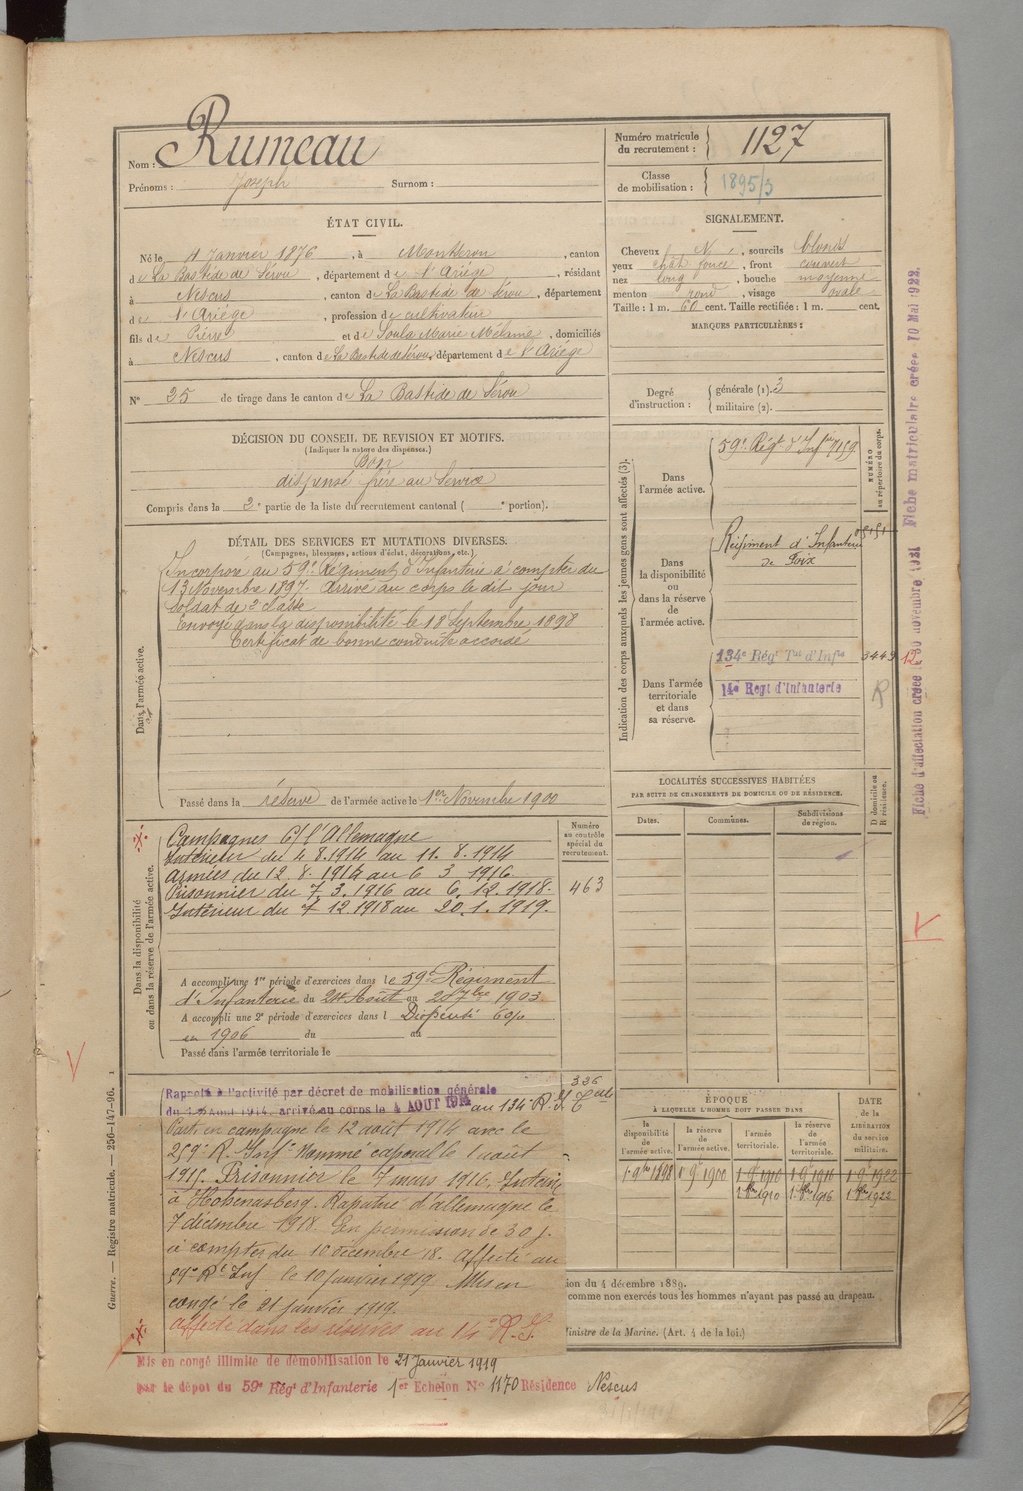 Nom : Rumeau
Prénoms : Joseph Surnom :
Numéro matricule du recrutement : 1127
Classe de mobilisation : 1895/3
ÉTAT CIVIL.
Né le 11 Janvier 1876, à Montseron, canton
de La Bastide de Sérou, département de l'Ariège, résidant
à Nescus, canton de La Bastide de Sérou, département
de l'Ariège, profession de cultivateur
fils de Pierre et de Soula Marie Mélanie, domiciliés
à Nescus, canton de La Bastide de Sérou, département de l'Ariège
N° 25 de tirage dans le canton de La Bastide de Sérou
SIGNALEMENT.
Cheveux N, sourcils blonds
yeux chât foncé, front couvert
nez long, bouche moyenne
menton rond, visage ovale
Taille : 1 m. 60 cent. Taille rectifiée : 1 m. cent.
MARQUES PARTICULIÈRES :
Degré d'instruction : générale (1). 3
militaire (2).
DÉCISION DU CONSEIL DE REVISION ET MOTIFS.
(Indiquer la nature des dispenses.)
Bon
dispensé frère au Service
Compris dans la 2e partie de la liste du recrutement cantonal ( e portion).
DÉTAIL DES SERVICES ET MUTATIONS DIVERSES.
(Campagnes, blessures, actions d'éclat, décorations, etc.)
Dans l'armée active.
Incorporé au 59e Régiment d'Infanterie à compter du
13 Novembre 1897. Arrivé au corps le dit jour
Soldat de 2e classe
Envoyé dans la disponibilité le 18 Septembre 1898
Certificat de bonne conduite accordé
Passé dans la réserve de l'armée active le 1er Novembre 1900
Indication des corps auxquels les jeunes gens sont affectés (3).
NUMÉRO au répertoire du corps.
Dans l'armée active.
59e Régt d'Infrie 7159
Dans la disponibilité ou dans la réserve de l'armée active.
Régiment d'Infanterie
de Foix
Dans l'armée territoriale et dans sa réserve.
134e Régt Tal d'Infie 3443 12
14e Regt d'Infanterie R
LOCALITÉS SUCCESSIVES HABITÉES
PAR SUITE DE CHANGEMENTS DE DOMICILE OU DE RÉSIDENCE.
Dates. Communes. Subdivisions de région. D domicile ou R résidence.
Dans la disponibilité ou dans la réserve de l'armée active.
Numéro au contrôle spécial du recrutement.
463
Campagnes C/ l'Allemagne
Intérieur du 4.8.1914 au 11.8.1914
Armées du 12.8.1914 au 6 3 1916
Prisonnier du 7.3.1916 au 6.12.1918.
Intérieur du 7 12 1918 au 20.1.1919.
A accompli une 1re période d'exercices dans le 59e Régiment
d'Infanterie du 24 Août au 20 7bre 1903.
A accompli une 2e période d'exercices dans l
en 1906 du au
Passé dans l'armée territoriale le
336
Rappelé à l'activité par décret de mobilisation générale
du Août 1914, arrivé au corps le 4 AOUT 1914 au 134e R. I. Tale
Parti en campagne le 12 août 1914 avec le
259e R. Inf. Nommé caporal le 1 août
1915. Prisonnier le 7 mars 1916. Interné
à Hohenasberg. Rapatrié d'allemagne le
7 décembre 1918. En permission de 30 j.
à compter du 10 décembre 18. Affecté au
59e Rt Inf le 10 janvier 1919 Mis en
congé le 21 janvier 1919.
Affecté dans les réserves au 14e R.I.
ÉPOQUE
À LAQUELLE L'HOMME DOIT PASSER DANS
DATE de la LIBÉRATION du service militaire.
la disponibilité de l'armée active. la réserve de l'armée active. l'armée territoriale. la réserve de l'armée territoriale.
1 9bre 1898 1 9e 1900 1 9e 1910 1 9e 1916 1 9e 1922
1 8bre 1910 1 8bre 1916 1 8bre 1922
ion du 4 décembre 1889.
comme non exercés tous les hommes n'ayant pas passé au drapeau.
Ministre de la Marine. (Art. 4 de la loi.)
Mis en congé illimité de démobilisation le 21 Janvier 1919
par le dépot du 59e Régt d'Infanterie 1er Echelon No 1170 Résidence Nescus
Guerre. — Registre matricule. — 256-147-96. 1
Fiche d'affectation créée le 30 novembre 1921 Fiche matriculaire créée 10 Mai 1922.